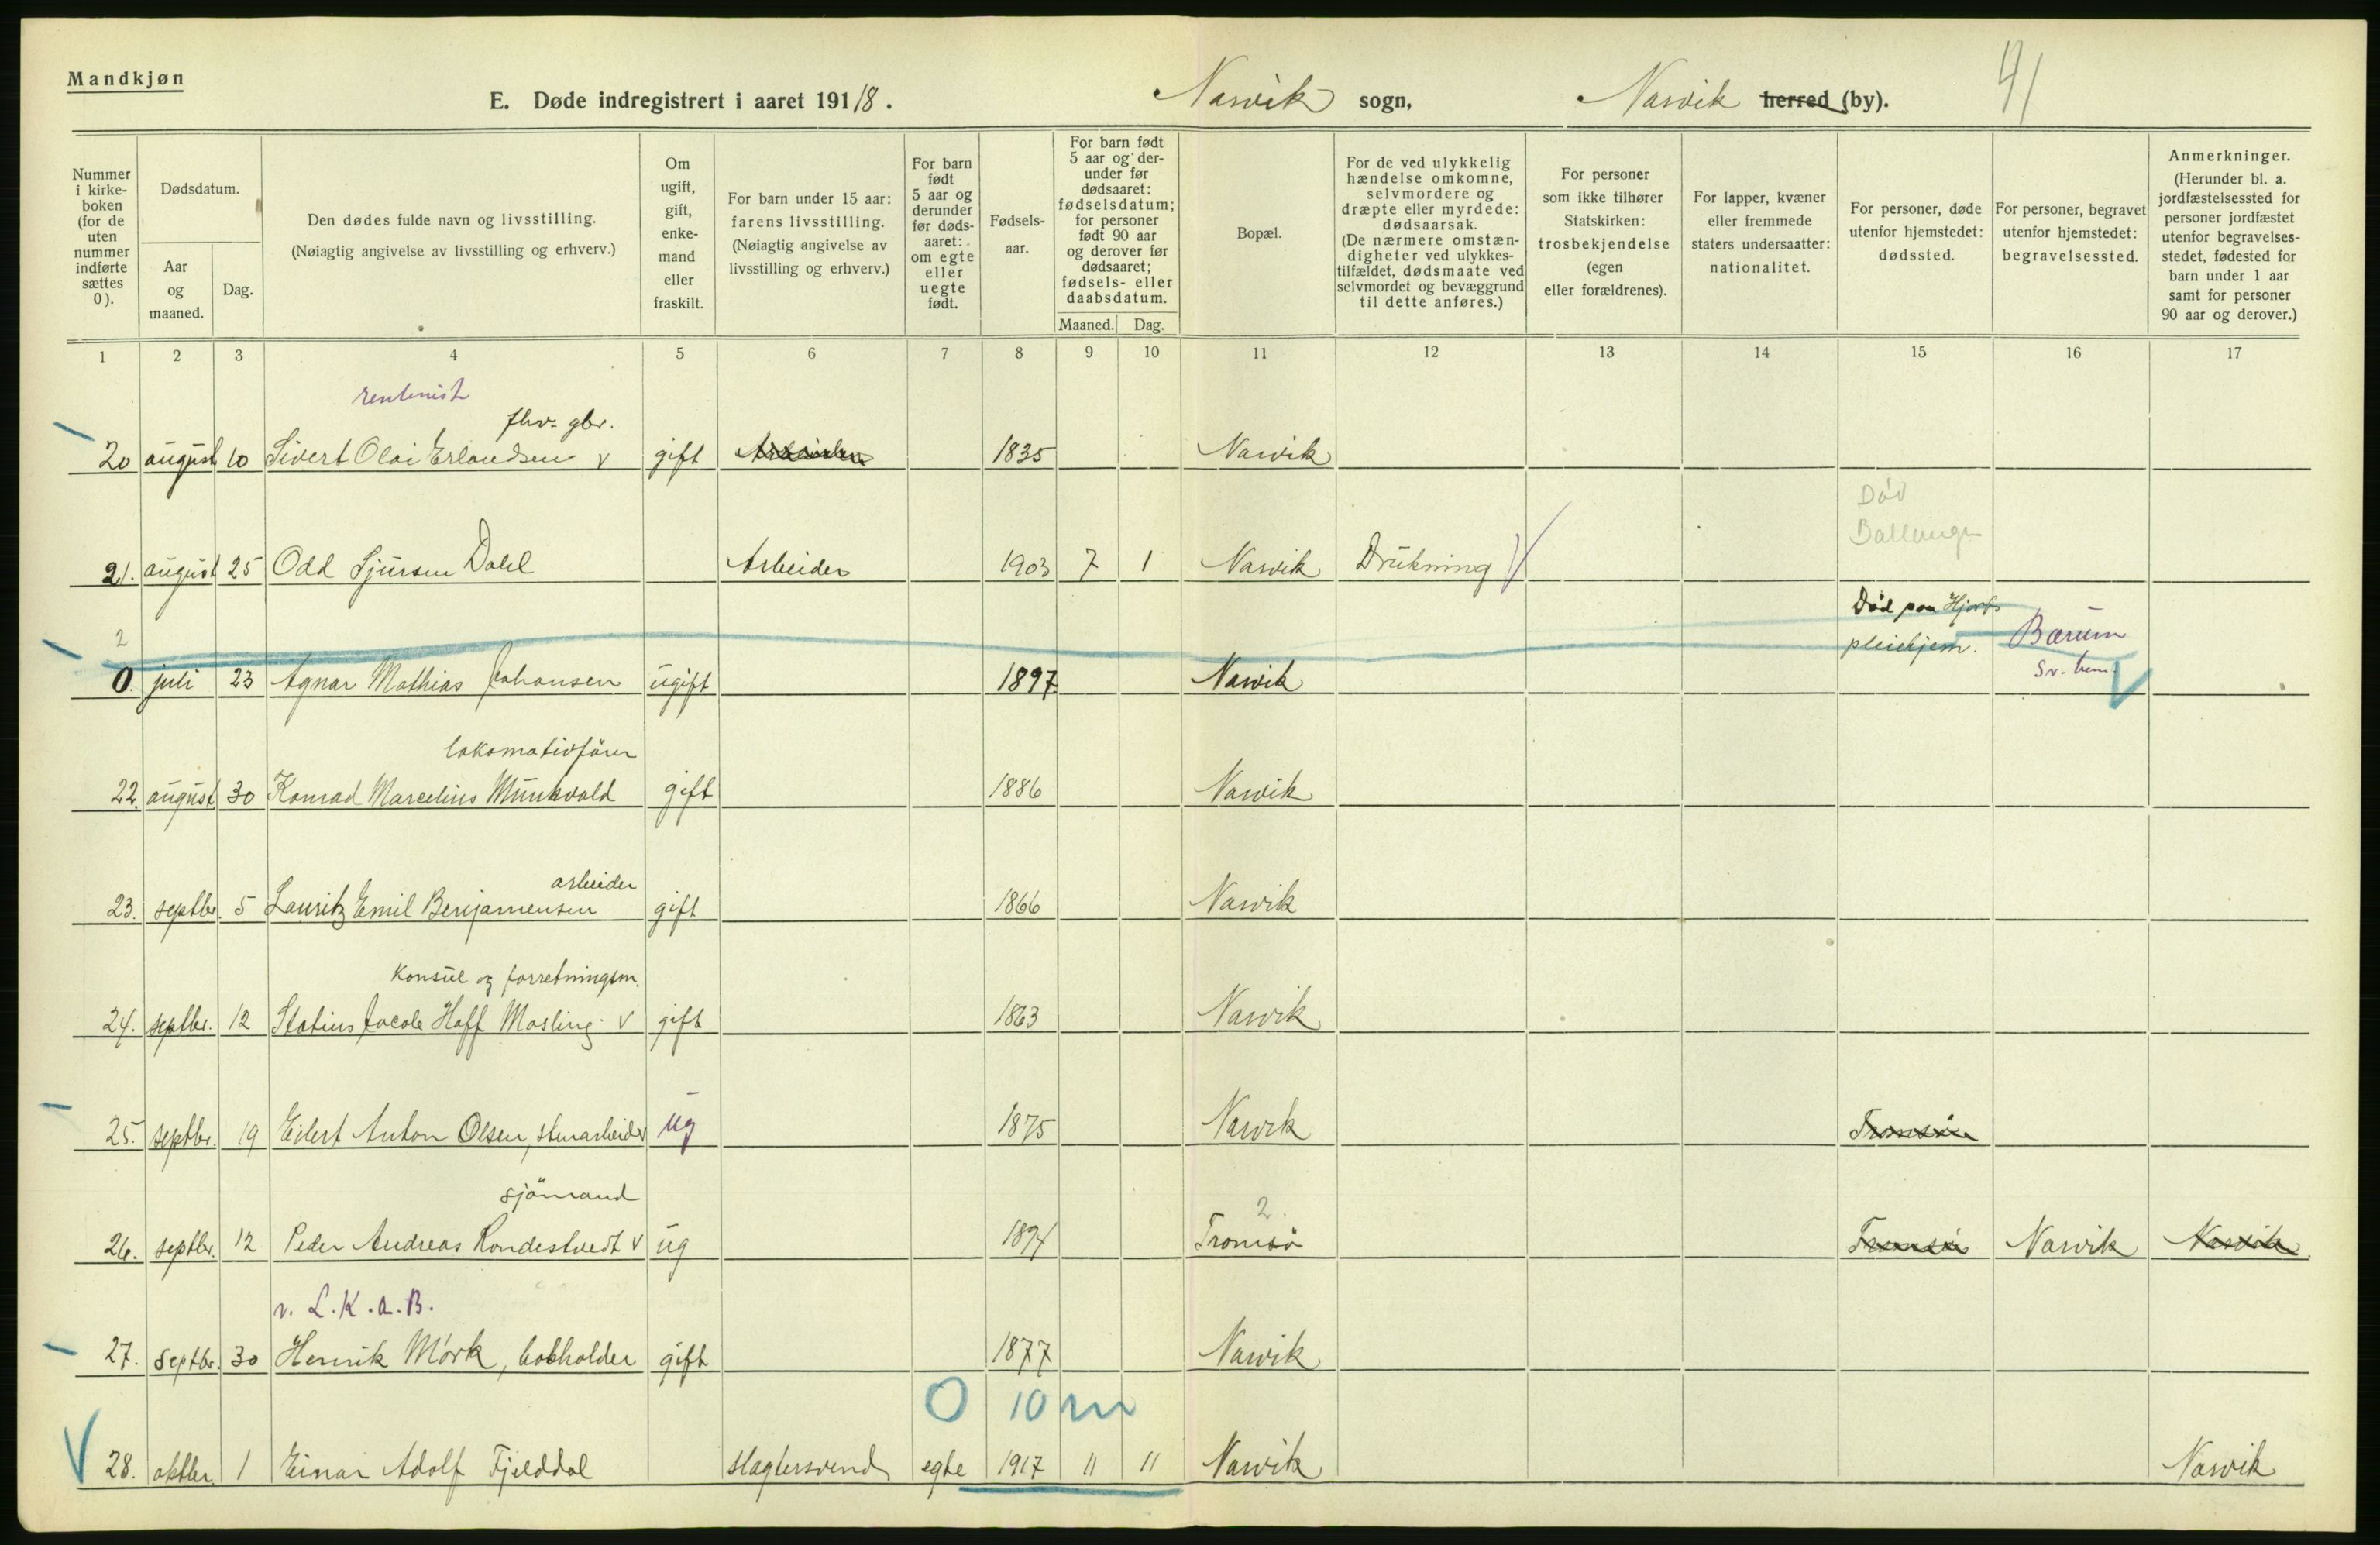 Mandkjøn
E. Døde indregistrert i aaret 1918. Narvik sogn, Narvik herred (by). 41
Nummer i kirkeboken (for de uten nummer indførte sættes 0).
Dødsdatum.
Aar og maaned.
Dag.
Den dødes fulde navn og livsstilling. (Nøiagtig angivelse av livsstilling og erhverv.)
Om ugift, gift, enkemand eller fraskilt.
For barn under 15 aar: farens livsstilling. (Nøiagtig angivelse av livsstilling og erhverv.)
For barn født 5 aar og derunder før dødsaaret: om egte eller uegte født.
Fødselsaar.
For barn født 5 aar og derunder før dødsaaret: fødselsdatum; for personer født 90 aar og derover før dødsaaret; fødsels- eller daabsdatum.
Maaned. Dag.
Bopæl.
For de ved ulykkelig hændelse omkomne, selvmordere og dræpte eller myrdede: dødsaarsak. (De nærmere omstændigheter ved ulykkestilfældet, dødsmaate ved selvmordet og bevæggrund til dette anføres.)
For personer som ikke tilhører Statskirken: trosbekjendelse (egen eller forældrenes).
For lapper, kvæner eller fremmede staters undersaatter: nationalitet.
For personer, døde utenfor hjemstedet: dødssted.
For personer, begravet utenfor hjemstedet: begravelsessted.
Anmerkninger. (Herunder bl. a. jordfæstelsessted for personer jordfæstet utenfor begravelsesstedet, fødested for barn under 1 aar samt for personer 90 aar og derover.)
1 2 3 4 5 6 7 8 9 10 11 12 13 14 15 16 17
rentenist
fhv. gbr.
20 august 10 Sivert Olai Erlandsen v gift Arbeider 1835 Narvik
Død
Ballangen
21. august 25 Odd Sjursen Dahl Arbeider 1903 7 1 Narvik Drukning
Død paa Hjorts
2 pleiehjem. Bærum
0. juli 23 Agnar Mathias Johansen ugift 1897 Narvik
lokomotivfører
22. august 30 Konrad Marcelius Munkvold gift 1886 Narvik
arbeider
23. septbr. 5 Lauritz Emil Benjaminsen gift 1866 Narvik
Konsul og forretningsm.
24. septbr. 12 Statius Jacob Hoff Mosling v gift 1863 Narvik
25. septbr. 19 Eilert Anton Olsen, stuearbeider ug 1875 Narvik Tromsø
sjömand 2.
26. septbr. 12 Peder Andreas Rondestvedt v ug 1894 Tromsö Tromsö Narvik Narvik
v. L.K.a.B.
27. septbr. 30 Henrik Mörk, bokholder gift 1877 Narvik
0 10 m
V 28. oktbr. 1 Einar Adolf Fjelddal slagtersvend egte 1917 11 11 Narvik Narvik